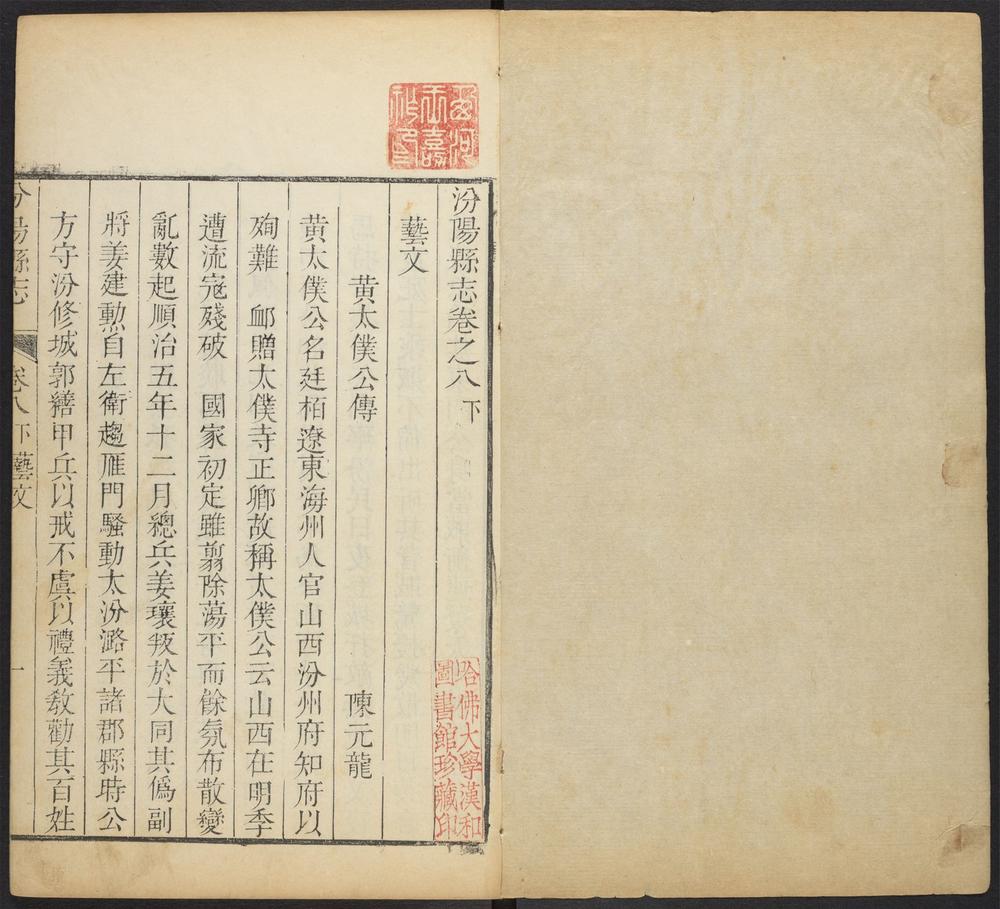 汾陽縣志卷之八下
藝文
黄太僕公傳
陳元龍
黄太僕公名廷栢遼東海州人官山西汾州府知府以
殉難 䘏贈太僕寺正卿故稱太僕公云山西在明季
遭流宼殘破 國家初定雖翦除蕩平而餘氛布散變
亂數起順治五年十二月總兵姜瓖叛於大同其偽副
將姜建勲自左衛趨雁門騷動太汾潞平諸郡縣時公
方守汾修城郭繕甲兵以戒不虞以禮義教勸其百姓
汾陽縣志
卷八下藝文
一
哈佛大學漢和
圖書館珍藏印